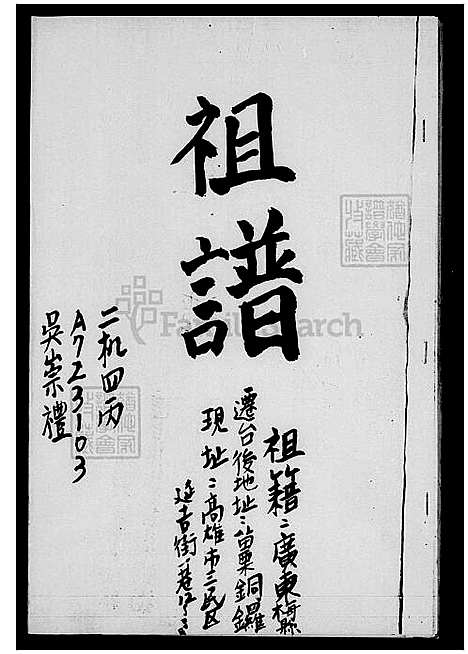 祖譜
祖籍:廣東梅縣
遷台後地址:苗栗銅鑼
現址:高雄市三民區
延吉街
二机四丙
A7223103
吳崇禮
FamilySearch